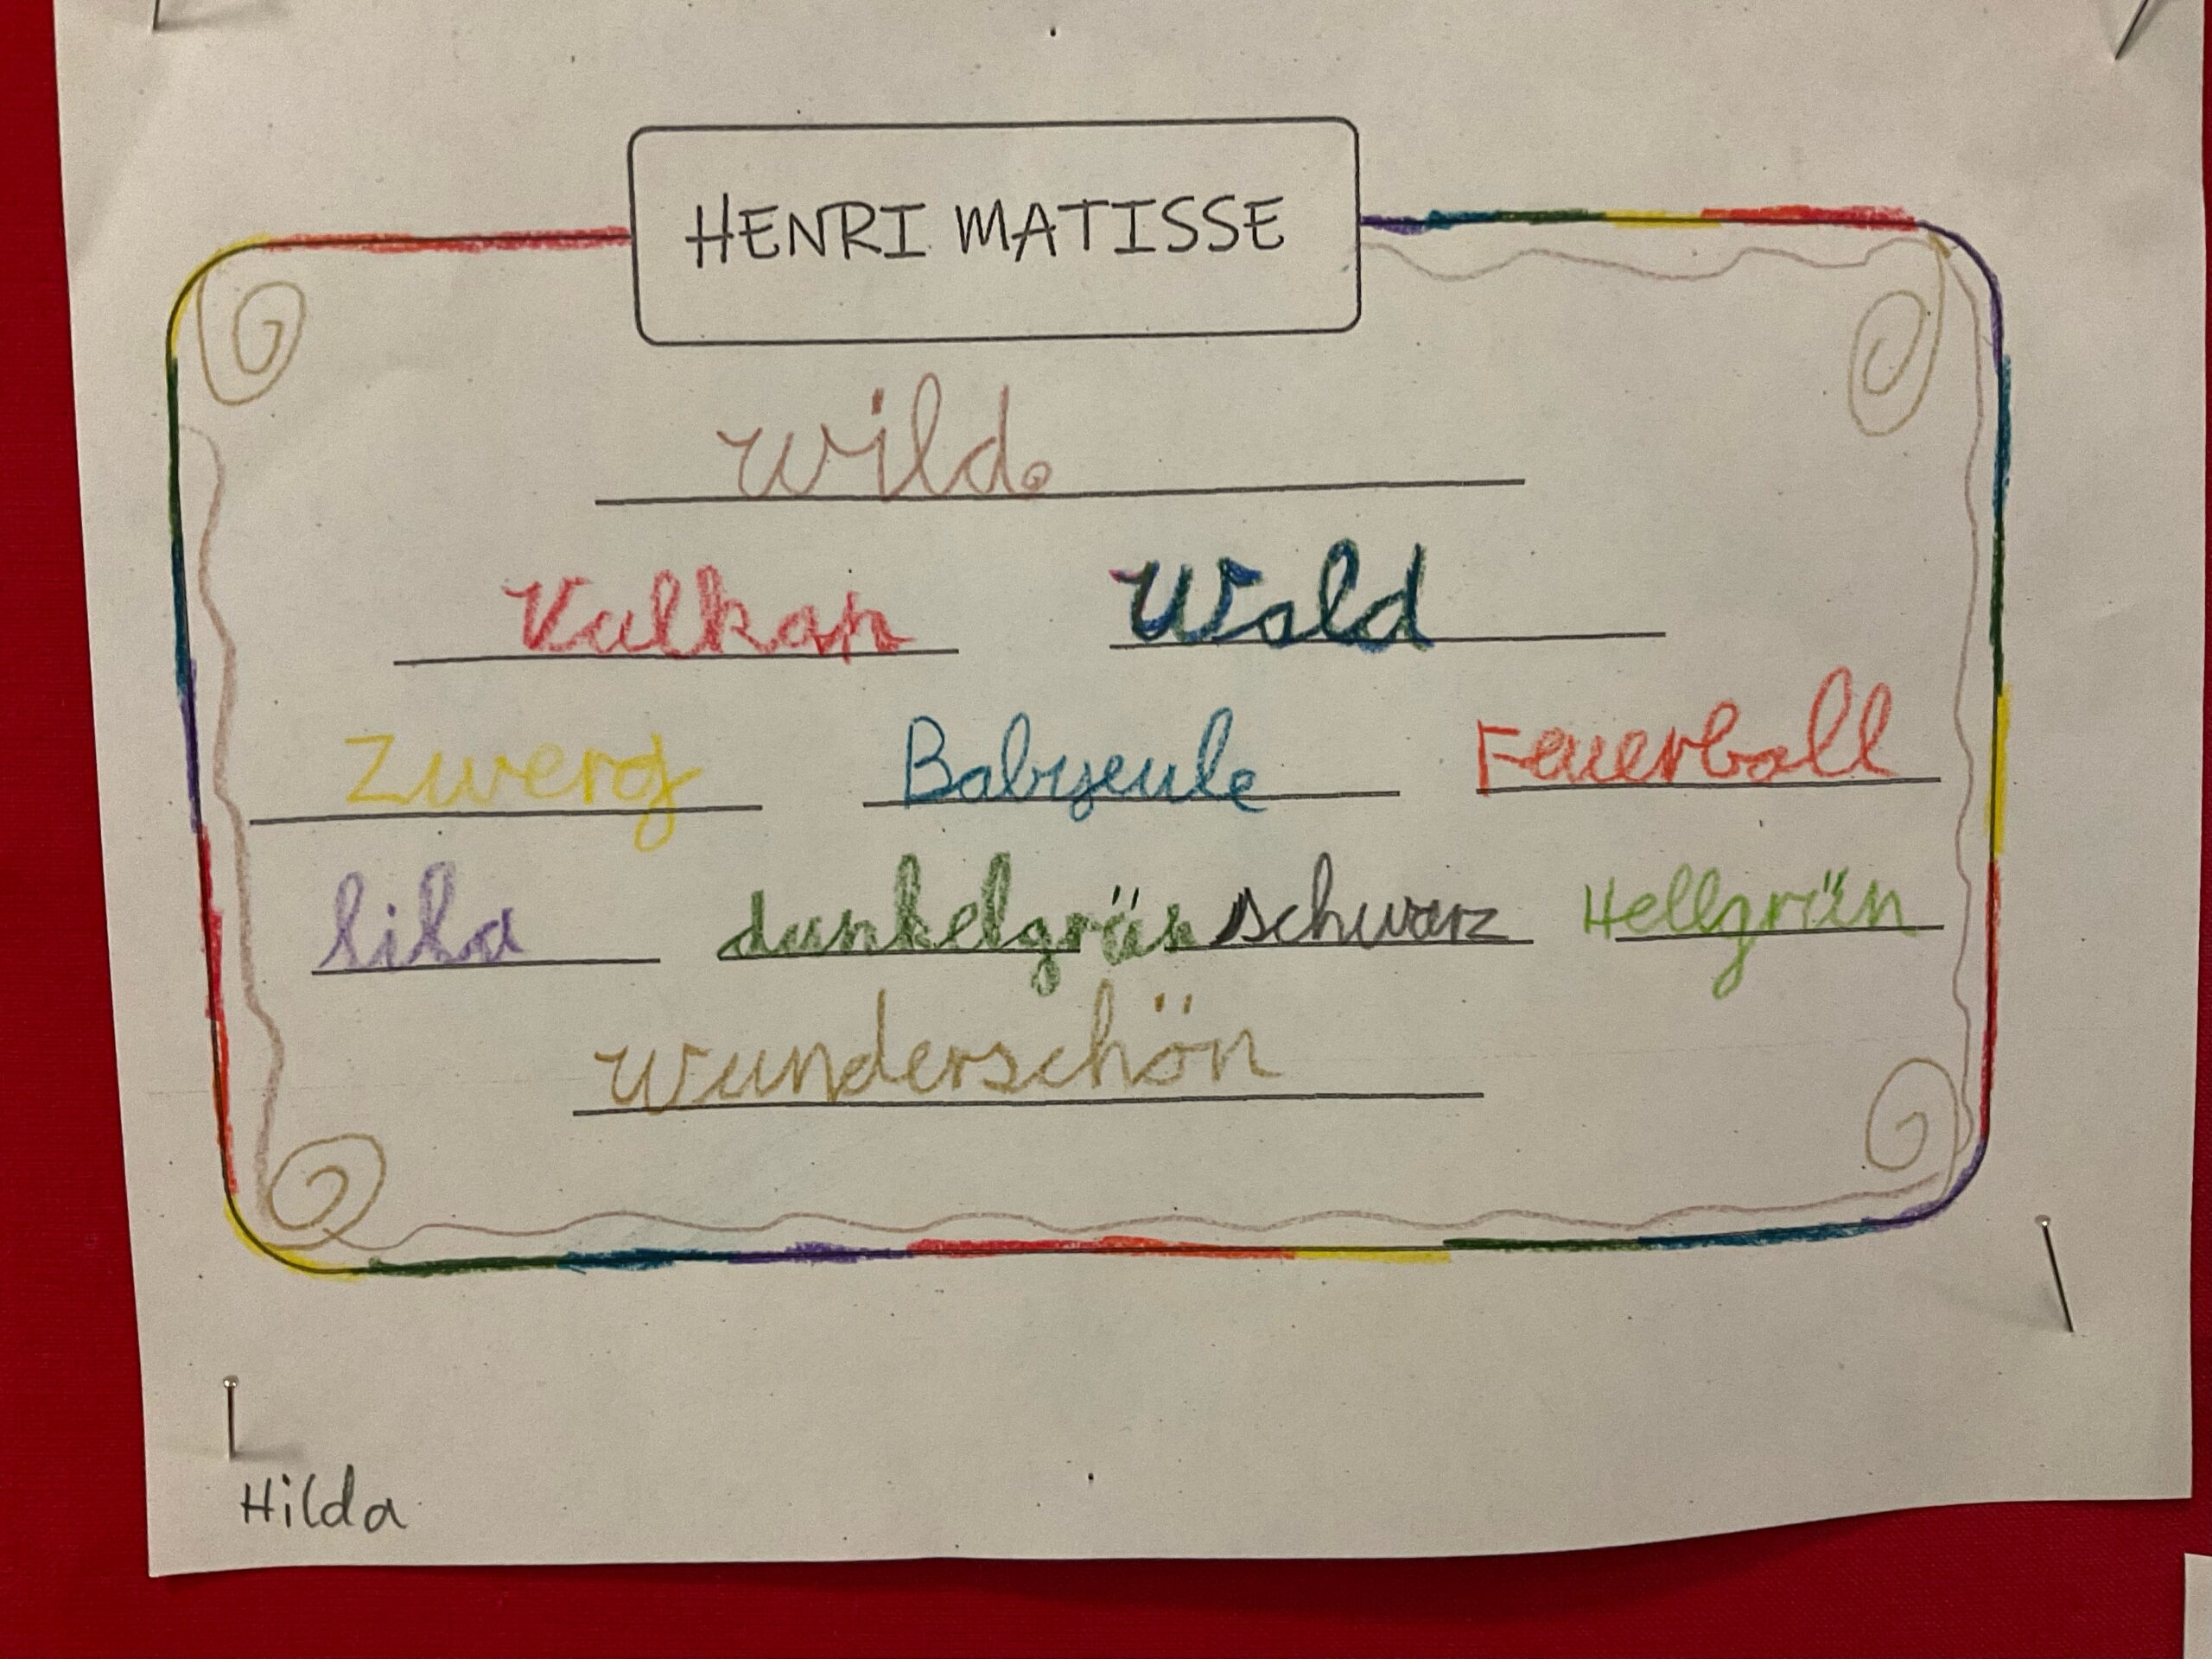 HENRI MATISSE
wild.
Vulkan Wald
Zwerg Babyeule Feuerball
lila dunkelgrün schwarz Hellgrün
wunderschön
Hilda